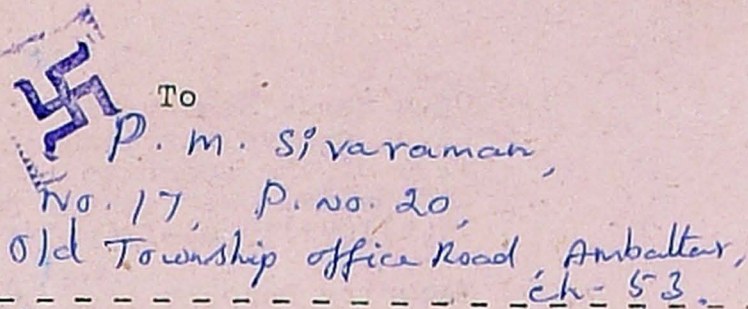 To
P. M. Sivaraman,
No. 17, P. No. 20,
Old Township office Road, Ambattur,
ch- 53.